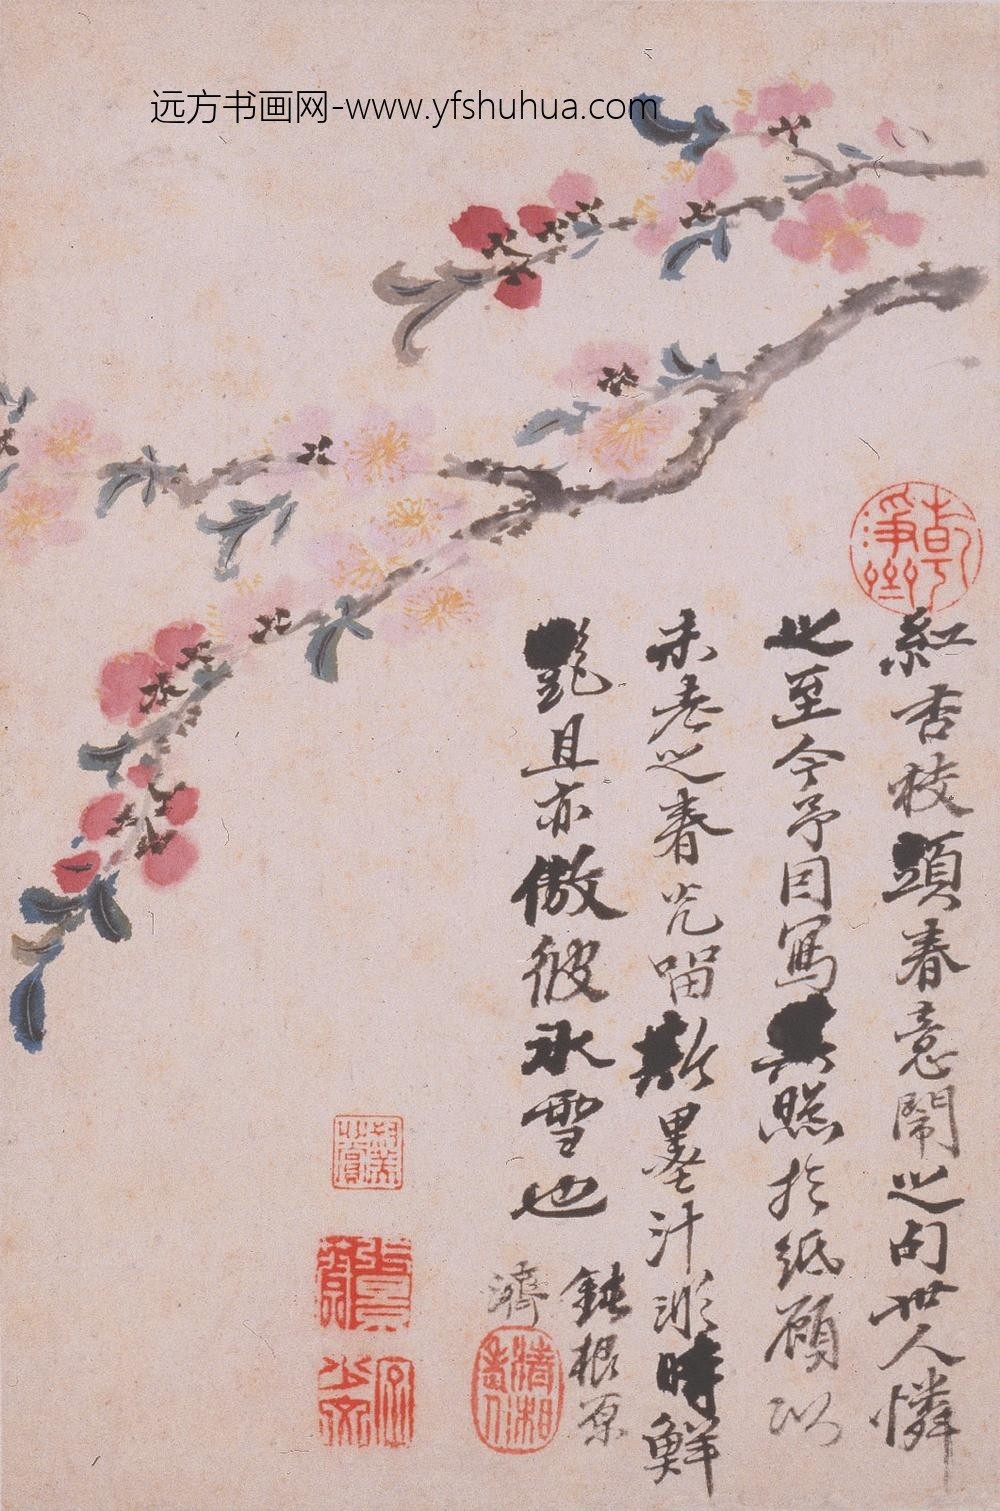 远方书画网-www.yfshuhua.com
紅杏枝頭春意閙之句世人憐
之至今予因寫其照於紙顧以
未老之春光留斯墨汁濺時鮮
艷且亦傲彼冰雪也
鈍根原
濟
清湘老人